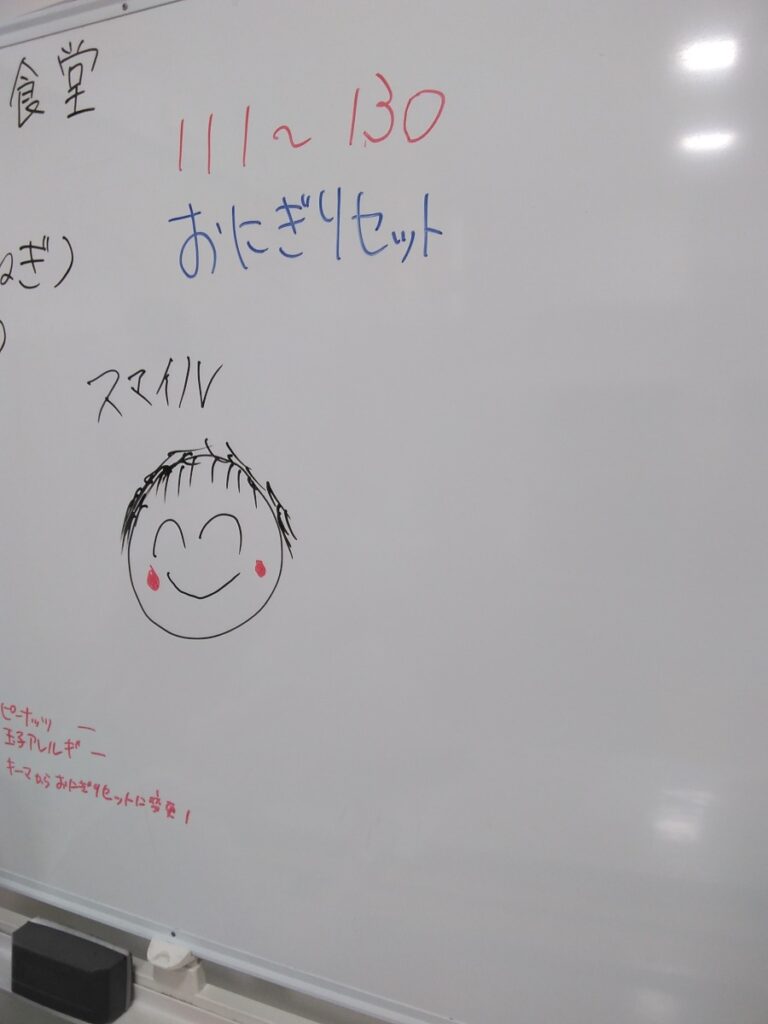 食堂
111～130
おにぎりセット
ねぎ)
)
スマイル
ピーナッツ ー
玉子アレルギー
キーマからおにぎりセットに変更1